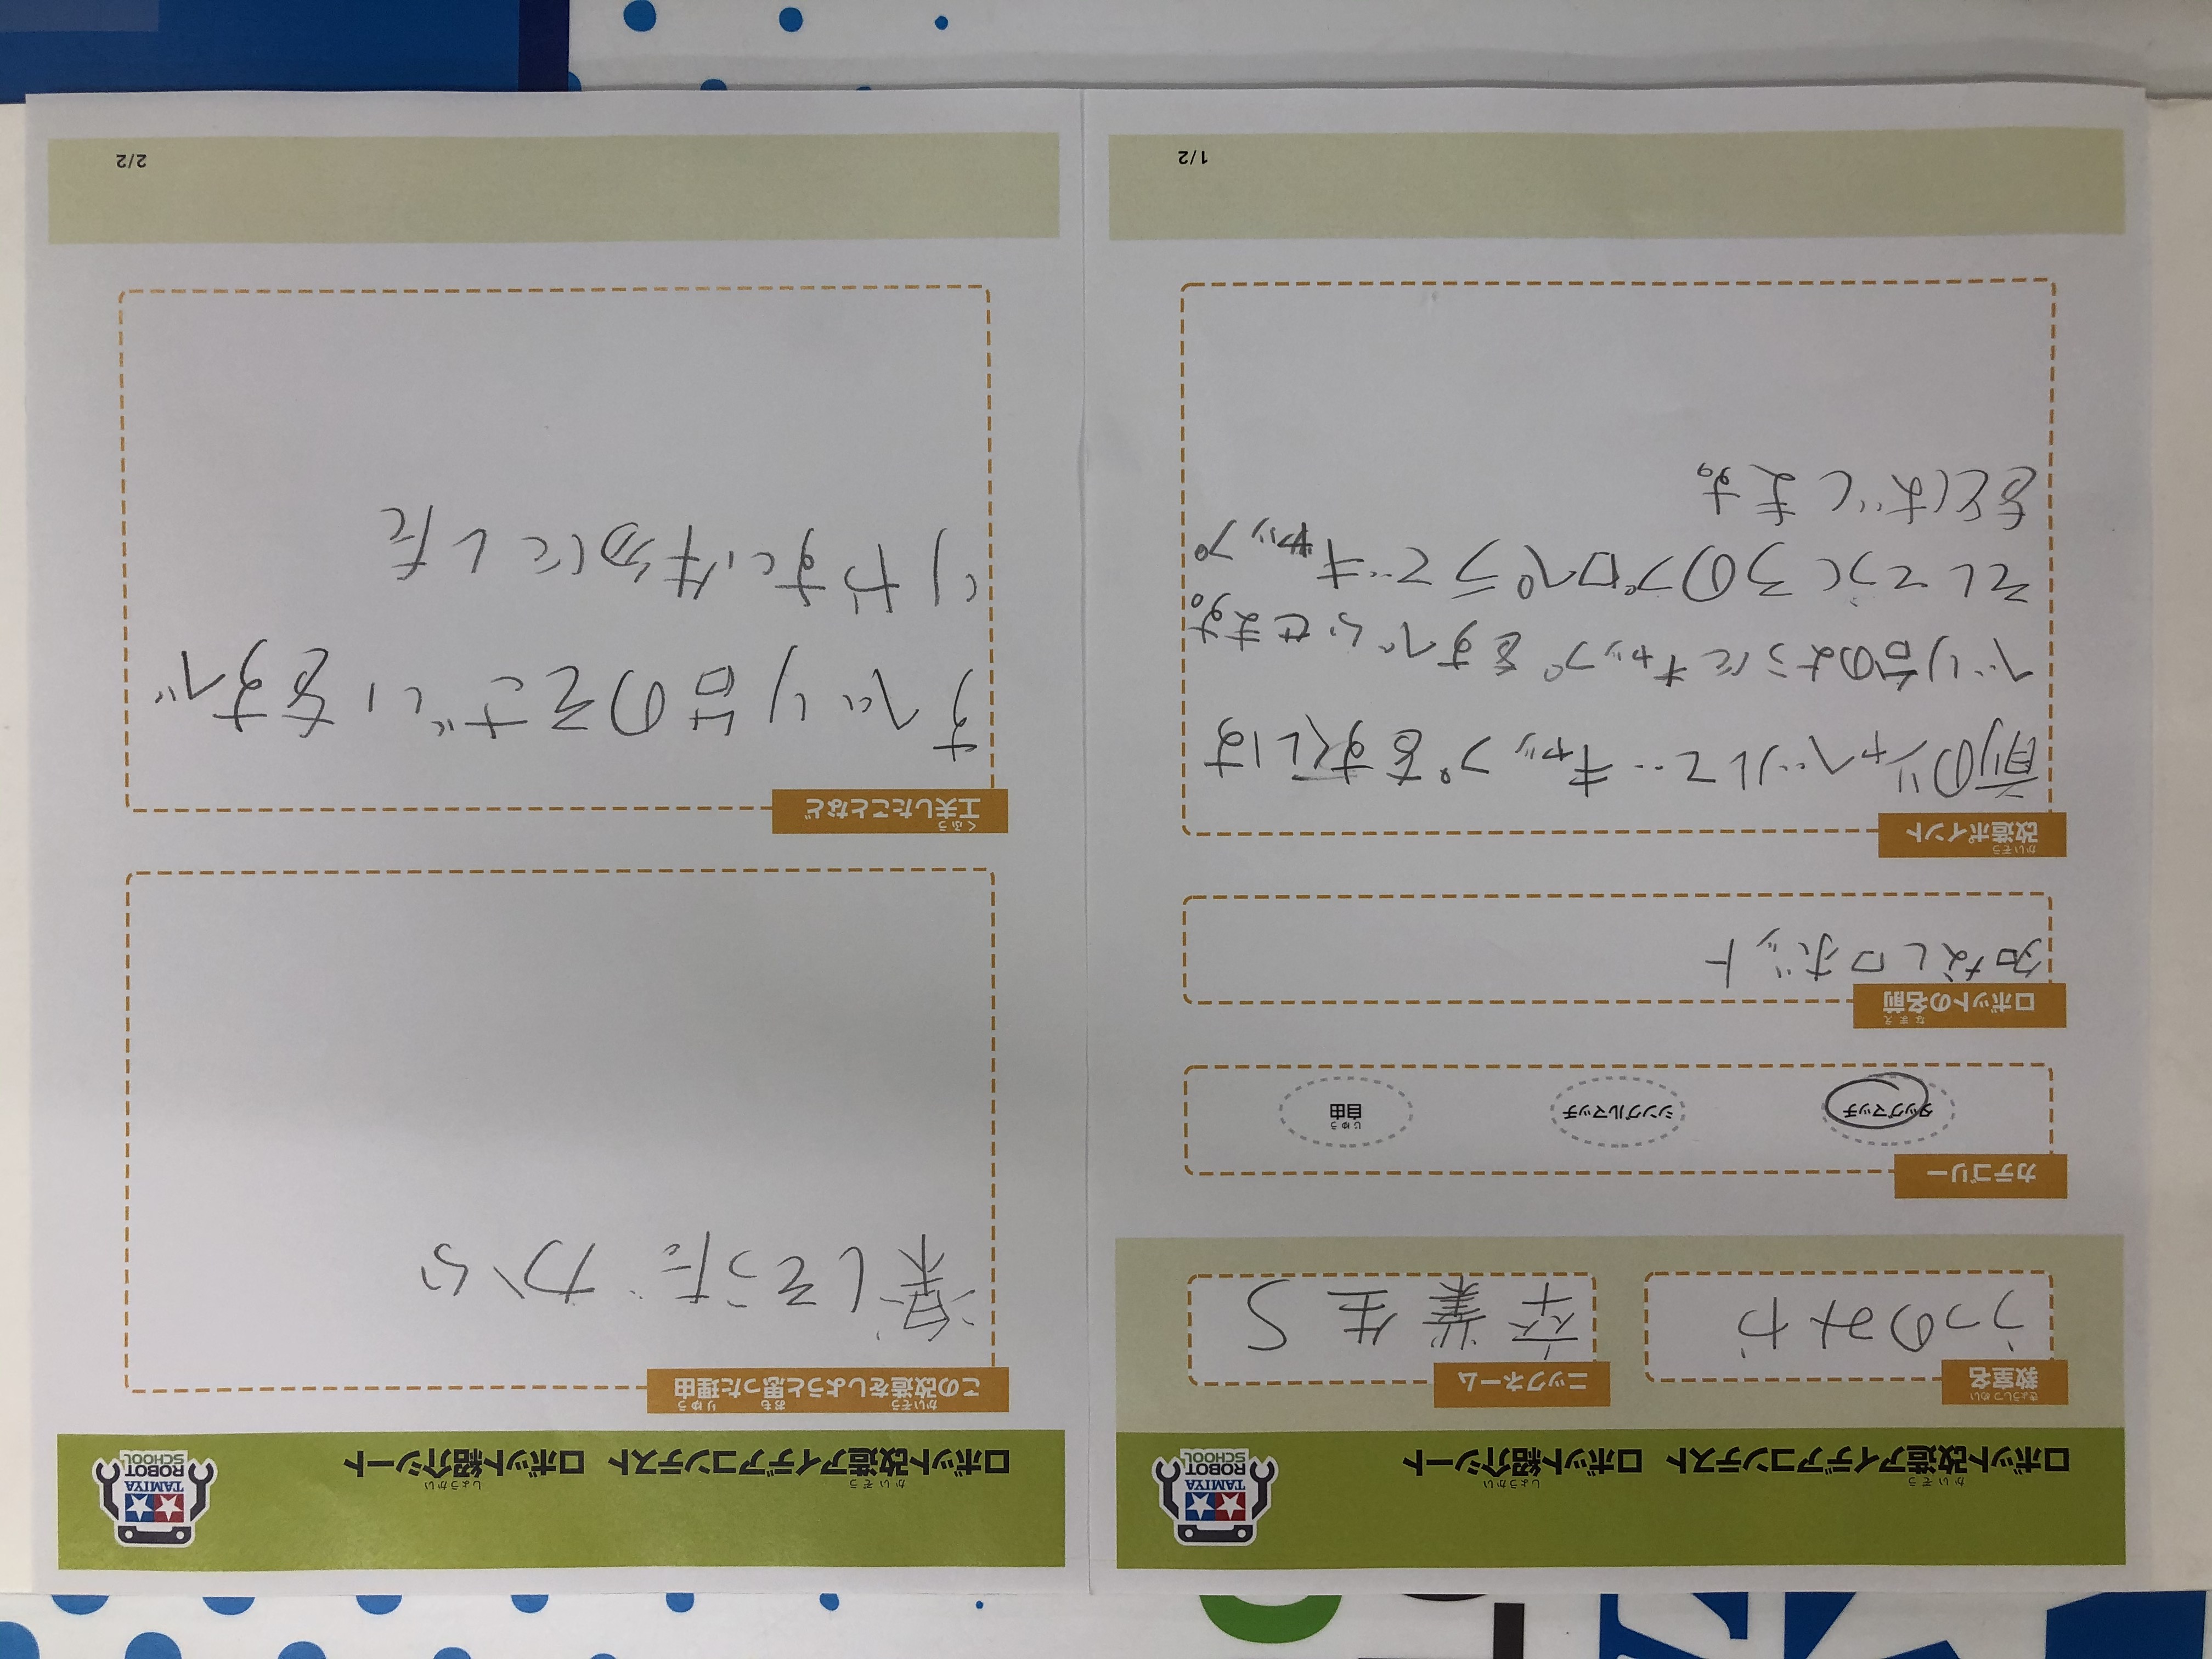 かいぞう しょうかい
ロボット改造アイデアコンテスト ロボット紹介シート
TAMIYA
ROBOT
SCHOOL
きょうしつ めい
教室名
うつのみや
ニックネーム
卒業生 S
カテゴリー
タッグマッチ
シングルマッチ
じゆう
自由
なまえ
ロボットの名前
名なしロボット
かいぞう
改造ポイント
前のシャベルで キャップをすくいは
べり台のようにキャップをすべらせます。
そしてうしろのプロペラでキャップ
をとばします。
1/2
かいぞう しょうかい
ロボット改造アイデアコンテスト ロボット紹介シート
TAMIYA
ROBOT
SCHOOL
かいぞう おも りゆう
この改造をしようと思った理由
楽しそうだから
くふう
工夫したことなど
すべり台のそざいをすべ
りやすい物にした
2/2